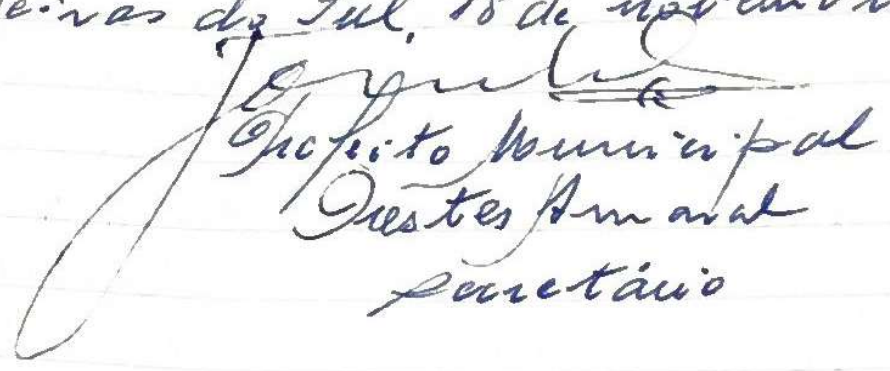 do Sul, 18 de novembro
Prefeito Municipal
Orestes Amaral
secretário